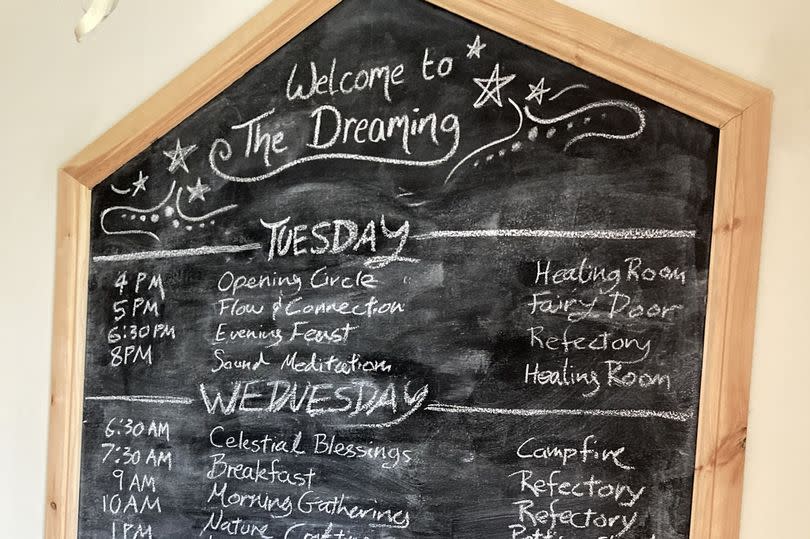 Welcome to
The Dreaming
TUESDAY
4 PM Opening Circle Healing Room
5 PM Flow & Connection Fairy Door
6:30 PM Evening Feast Refectory
8PM Sound Meditation Healing Room
WEDNESDAY
6:30 AM Celestial Blessings Campfire
7:30 AM Breakfast Refectory
9 AM Morning Gathering Refectory
10AM Nature
1PM